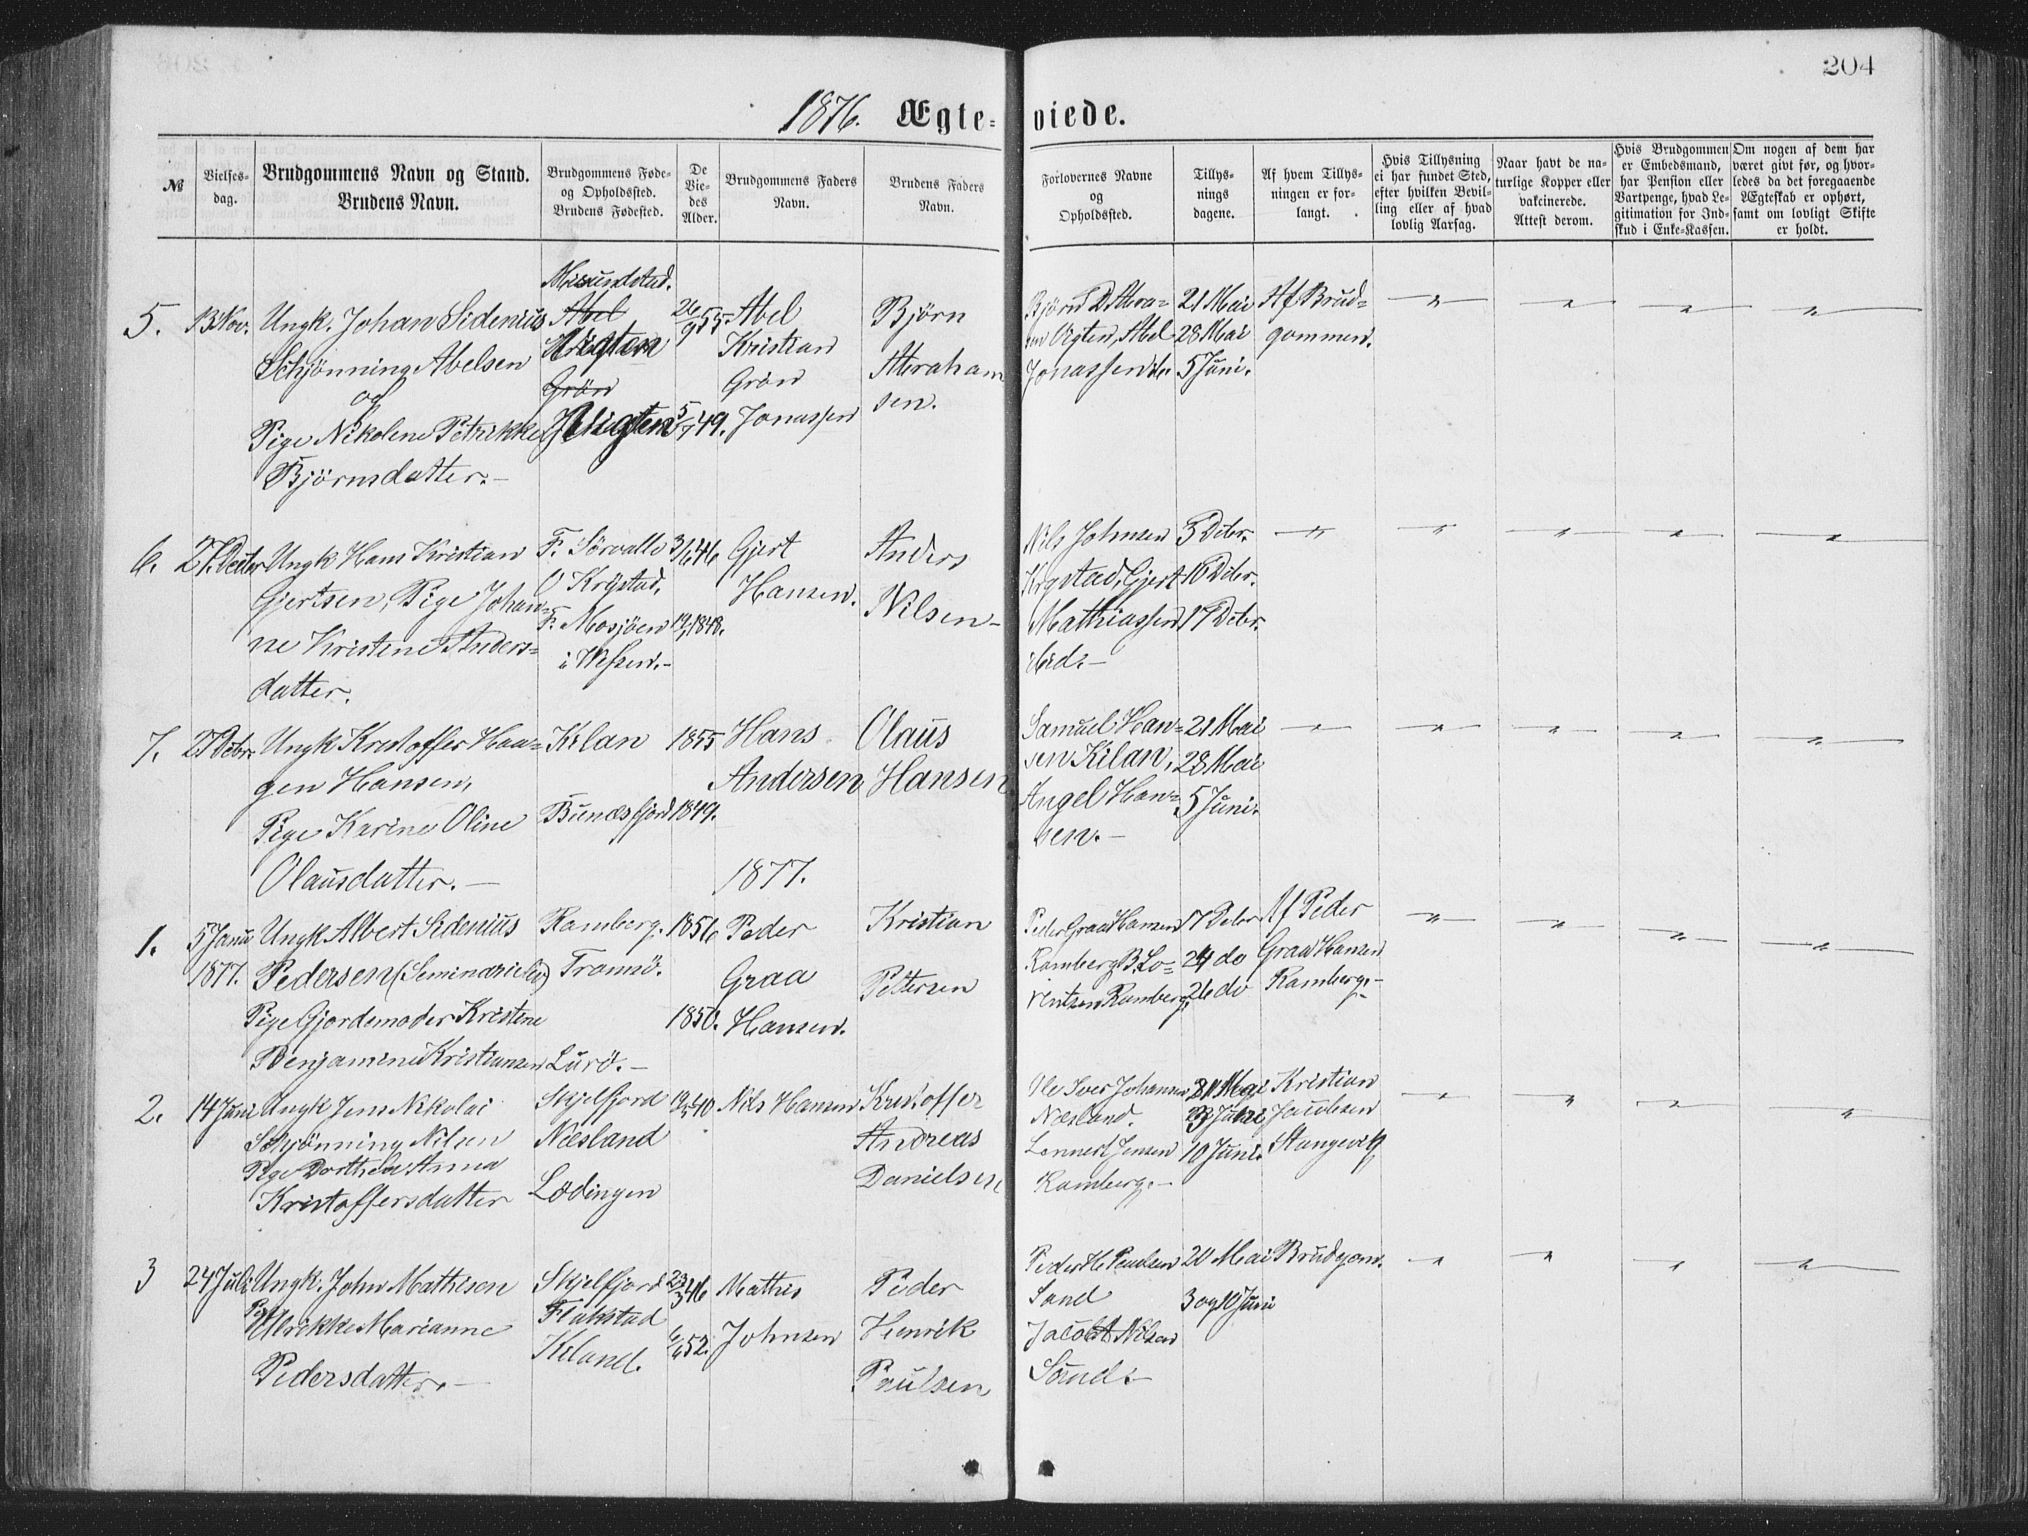 204
1876. Ægte= viede.
№
Vielses-
dag.
Brudgommens Navn og Stand.
Brudens Navn.
Brudgommens Føde-
og Opholdssted.
Brudens Fødested.
De
Vie-
des
Alder.
Brudgommens Faders
Navn.
Brudens Faders
Navn.
Forlovernes Navne
og
Opholdssted.
Tillys-
nings
dagene.
Af hvem Tillys-
ningen er for-
langt.
Hvis Tillysning
ei har fundet Sted,
efter hvilken Bevil-
ling eller af hvad
lovlig Aarsag.
Naar havt de na-
turlige Kopper eller
vakcinerede.
Attest derom.
Hvis Brudgommen
er Embedsmand,
har Pension eller
Vartpenge, hvad Le-
gitimation for Ind-
skud i Enke-Kassen.
Om nogen af dem har
været givt før, og hvor-
ledes da det foregaaende
Ægteskab er ophørt,
samt om lovligt Skifte
er holdt.
5.
13 Nov.
Ungk. Johan Sidenius
Schjønning Abelsen
og
Pige Nikoline Petrikke
Björnsdatter.-
Abel
Vigten
Grön
Vigten
26/9 55.
5/7 49.
Abel
Kristian
Grön
Jonassen
Björn
Abraham
sen.
Björn D Abra-
sen Vigten, Abel
Jonassen do.
21 Mai
28 Mai
5 Juni.
Af Brud=
gommen.
6.
27 Decbr
Ungk Hans Kristian
Gjertsen, Pige Johan=
ne Kristine Anders=
datter.
F. Sörvalle
O Krystad,
F. Mosjöen
i Vefsen.-
3/6 46
1848.
Gjert
Hansen.
Anders
Nilsen-
Nils Johnsen
Krystad, Gjert
Mathiassen
ibid.-
3 Dcbr.
10 Dcbr.
17 Dcbr.
7.
27 Dcbr.
Ungk Kristoffer Hau=
gen Hansen,
Pige Karine Oline
Olausdatter.-
Kilan
Bunesfjord
1855
1849.
Hans
Andersen
Olaus
Hansen
Samuel Han=
sen Kilan,
Angel Han=
sen.-
21 Mai
28 Mai
5 Juni.
1877.
1.
5 Janu
1877.
Ungk Albert Sidenius
Pedersen (Seminarielev)
Pige Gjordemoder Kristine
Benjamine Kristiansen
Ramberg.
Tromsö.
Lurö.-
1856
1850.
Peder
Graa
Hansen.
Kristian
Pettersen
Peder Graa Hansen
Ramberg B. Lo=
rentsen Ramberg.
17 Dcbr
24 do
26 do
Af Peder
Graa Hansen
Ramberg.-
2.
14 Juni
Ungk Jens Nikolai
Schjönning Nilsen
Pige Dorthea Anna
Kristoffersdatter
Skjelfjord
Næsland
Lödingen
19/5 40
Nils Hansen
Kristoffer
Andreas
Danielsen
Ole Iver Johansen
Næsland.
Lennert Jensen
Ramberg.-
Mai
3 Juni
10 Juni.
Kristian
Jacobsen
Stangevik
3
24 Juli
Ungk. John Mathisen
Pige
Ulrikke Marianne
Pedersdatter.-
Skjelfjord
Flakstad
Kiland.
23/3 46
6/6 52.
Mathis
Johnsen
Peder
Henrik
Poulsen
Peder H. Poulsen
Sand
Jacob A Nilsen
Sand.-
20 Mai
3 og 10 Juni
Brudgom.